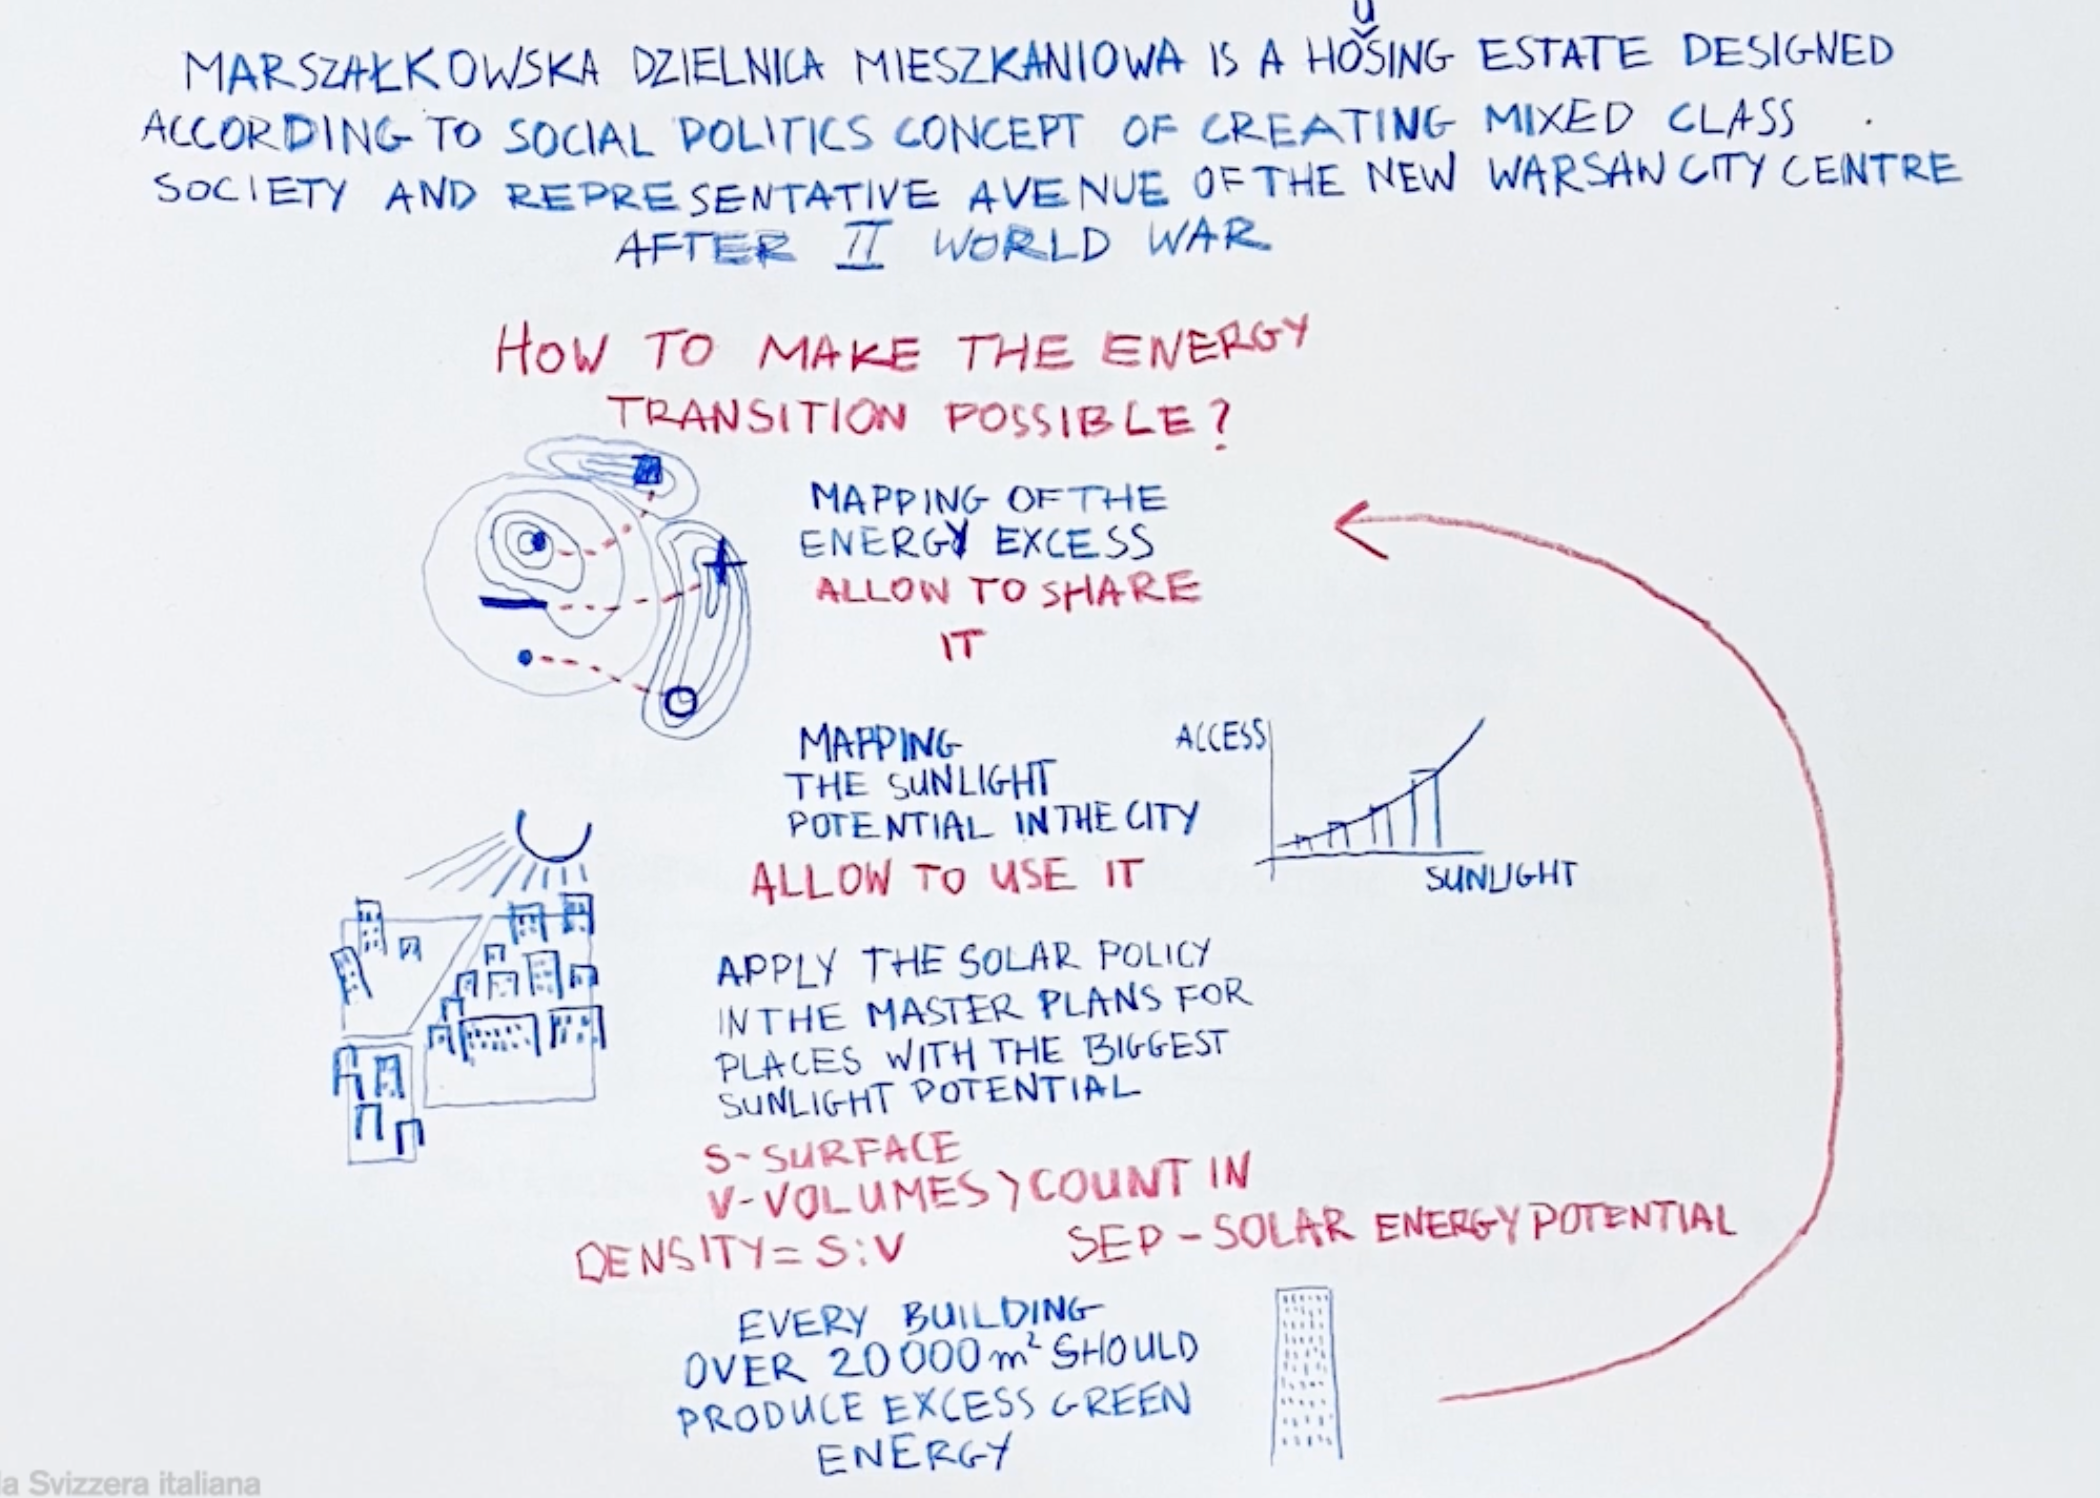 MARSZAŁKOWSKA DZIELNICA MIESZKANIOWA IS A HOUSING ESTATE DESIGNED
ACCORDING TO SOCIAL POLITICS CONCEPT OF CREATING MIXED CLASS
SOCIETY AND REPRESENTATIVE AVENUE OF THE NEW WARSAN CITY CENTRE
AFTER II WORLD WAR
HOW TO MAKE THE ENERGY
TRANSITION POSSIBLE?
MAPPING OF THE
ENERGY EXCESS
ALLOW TO SHARE
IT
MAPPING
THE SUNLIGHT
POTENTIAL IN THE CITY
ALLOW TO USE IT
ACCESS
SUNLIGHT
APPLY THE SOLAR POLICY
IN THE MASTER PLANS FOR
PLACES WITH THE BIGGEST
SUNLIGHT POTENTIAL
S-SURFACE
V-VOLUMES > COUNT IN
DENSITY = S:V
SEP - SOLAR ENERGY POTENTIAL
EVERY BUILDING
OVER 20 000 m² SHOULD
PRODUCE EXCESS GREEN
ENERGY
la Svizzera italiana